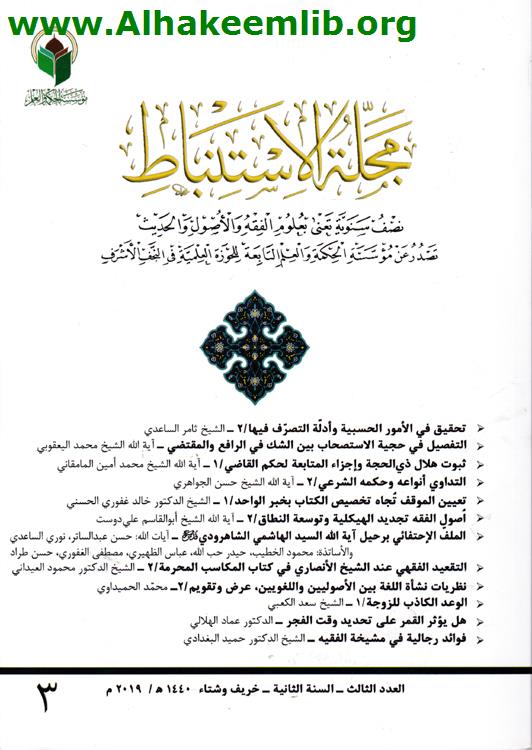 www.Alhakeemlib.org
مؤسسة الحكمة والعلم
مَجَلَّةُ الاِسْتِنْبَاطِ
نِصْفُ سَنَوِيَّةٍ تُعْنَى بِعُلُومِ الفِقْهِ وَالأُصُولِ وَالحَدِيثِ
تَصْدُرُ عَنْ مُؤَسَّسَةِ الحِكْمَةِ وَالعِلْمِ التَّابِعَةِ لِلحَوْزَةِ العِلْمِيَّةِ فِي النَّجَفِ الأَشْرَفِ
تحقيق في الأمور الحسبية وأدلّة التصرّف فيها/٢ ــ الشيخ ثامر الساعدي
التفصيل في حجية الاستصحاب بين الشك في الرافع والمقتضي ــ آية الله الشيخ محمد اليعقوبي
ثبوت هلال ذي‌الحجة وإجزاء المتابعة لحكم القاضي/١ ــ آية الله الشيخ محمد أمين المامقاني
التداوي أنواعه وحكمه الشرعي/٢ ــ آية الله الشيخ حسن الجواهري
تعيين الموقف تُجاه تخصيص الكتاب بخبر الواحد/١ ــ الشيخ الدكتور خالد غفوري الحسني
أصول الفقه تجديد الهيكلية وتوسعة النطاق/٢ ــ آية الله الشيخ أبوالقاسم علي‌دوست
الملفّ الإحتفائي برحيل آية الله السيد الهاشمي الشاهرودي ــ آيات الله: حسن عبدالساتر، نوري الساعدي
والأساتذة: محمود الخطيب، حيدر حب الله، عباس الظهيري، مصطفى الغفوري، حسن طراد
التقعيد الفقهي عند الشيخ الأنصاري في كتاب المكاسب المحرمة/٢ ــ الشيخ الدكتور محمود العيداني
نظريات نشأة اللغة بين الأصوليين واللغويين، عرض وتقويم/٢ــ محمّد الحميداوي
الوعد الكاذب للزوجة/١ ــ الشيخ سعد الكعبي
هل يؤثر القمر على تحديد وقت الفجر ــ الدكتور عماد الهلالي
فوائد رجالية في مشيخة الفقيه ــ الشيخ الدكتور حميد البغدادي
العدد الثالث ــ السنة الثانية ــ خريف وشتاء ١٤٤٠ هـ / ٢٠١٩ م
٣